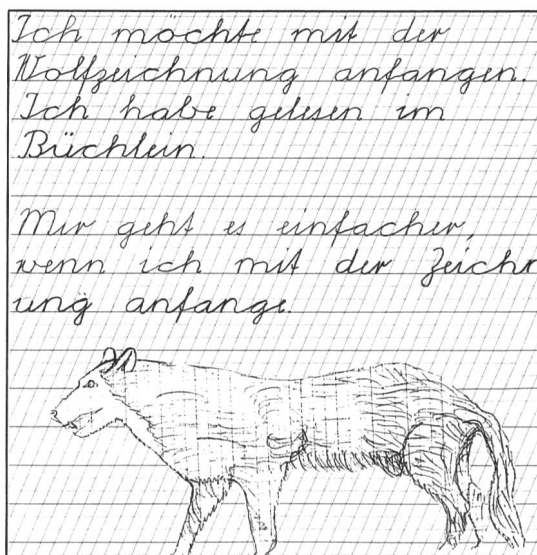 Ich möchte mit der
Wolfzeichnung anfangen.
Ich habe gelesen im
Büchlein.
Mir geht es einfacher,
wenn ich mit der Zeichn
ung anfange.